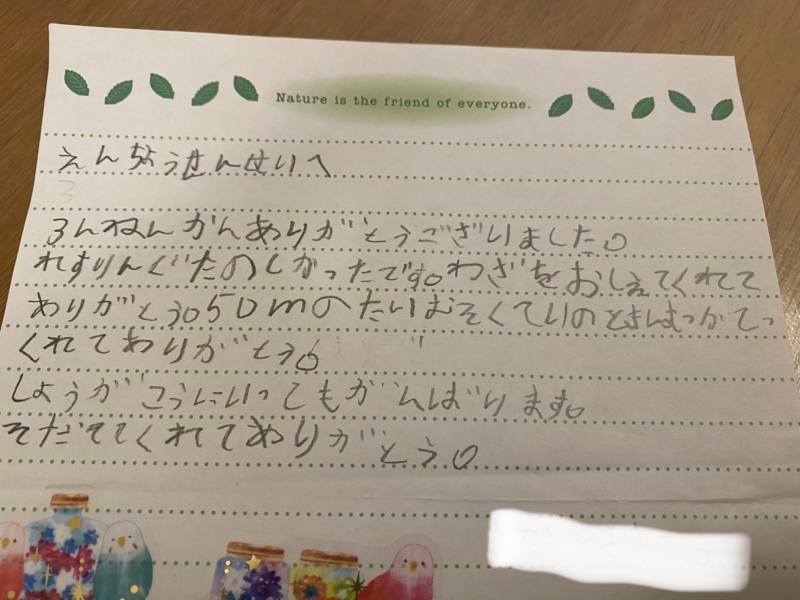 Nature is the friend of everyone.
えんちょうせんせいへ
3んねんかんありがとうございました。
れすりんぐたのしかったです。わざをおしえてくれて
ありがとう。50mのたいむそくていのとき
くれてありがとう。
しょうがこうにいってもがんばります。
そだててくれてありがとう。